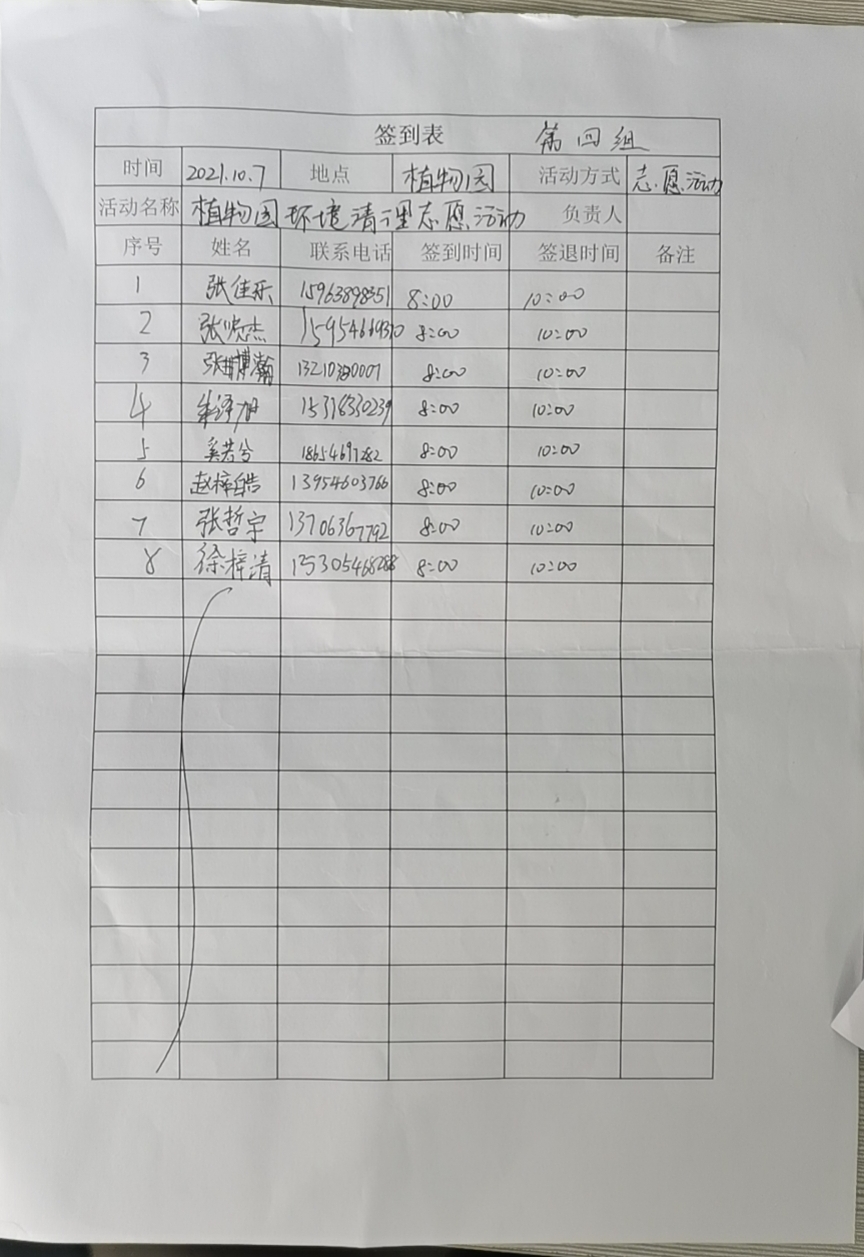 签到表 第四组
时间 2021.10.7 地点 植物园 活动方式 志愿活动
活动名称 植物园环境清理志愿活动 负责人
序号 姓名 联系电话 签到时间 签退时间 备注
1 张佳乐 15963898351 8:00 10:00
2 8:00 10:00
3 张博瀚 8:00 10:00
4 15316330239 8:00 10:00
5 奚若兮 18654697282 8:00 10:00
6 赵梓皓 13954603766 8:00 10:00
7 张哲宇 13706367792 8:00 10:00
8 徐梓清 15305468288 8:00 10:00